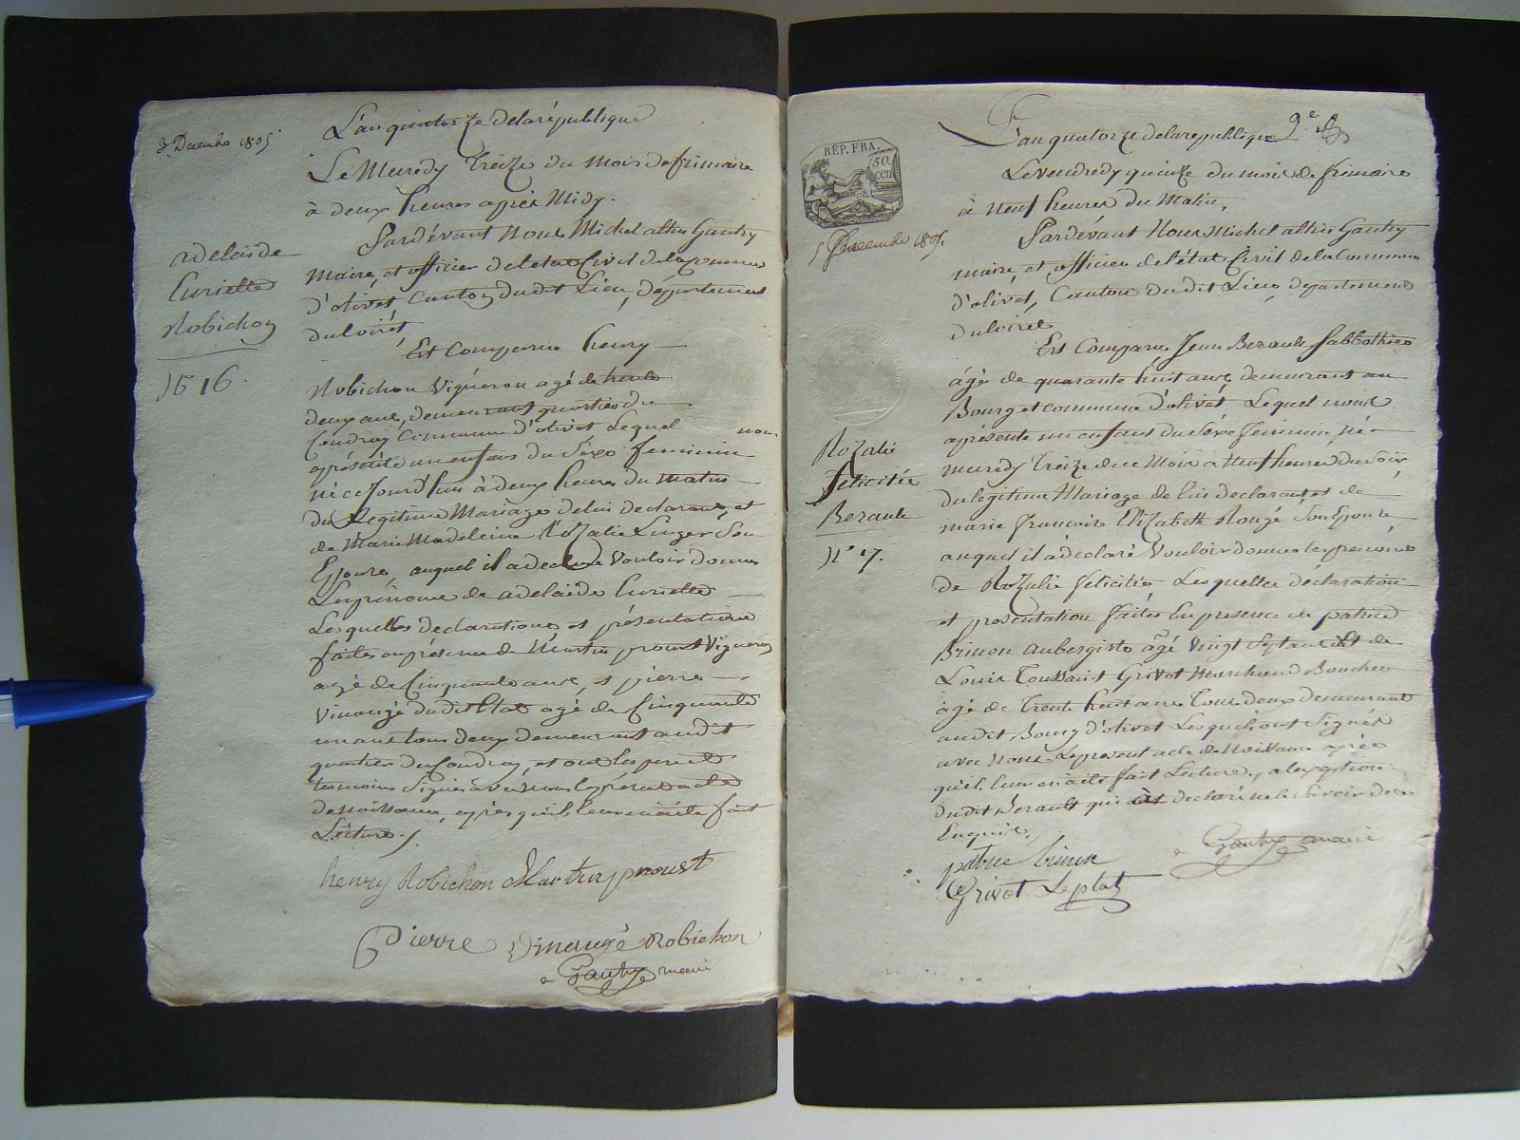 3. Decembre 1805
L'an quatorze de la république
Le Mercredy treize du mois de frimaire
à deux heures après Midy.
Pardévant Nous Michel altin Gautry
maire, et officier de l'état Civil de la Commune
d'olivet Canton dudit Lieu, département
du loirét
Est Comparu henry
adelaide
Robichon
16
Robichon Vigneron agé de trente
deux ans, demeurant quartier du
Coudray Commune d'olivet Lequel nous
a présenté un enfant du Séxe feminin
né cejourd'hui à deux heures du matin
du Legitime Mariage de lui declarant, et
de Marie Madeleine Rozalie Luger Son
Epouse, auquel il a declaré Vouloir donner
Les prénoms de adelaide
Lesquelles declarations et présentation
faites en présence de Martin proust Vigneron
agé de Cinquante ans, et pierre
Vinaugé dudit Etat agé de Cinquante
un ans tous deux demeurant audit
quartier du Coudray, et ont Les pere et
temoins Signé avec nous le présent acte
de naissance, après qu'il leur en a été fait
Lecture.
henry Robichon Martin proust
Pierre Vinaugé Robichon
Gautry maire
REP. FRA.
50
CEN
5 Decembre 1805.
L'an quatorze de la republique
2e
Le Vendredy quinze du mois de frimaire
à Neuf heures du Matin,
Pardévant Nous Michel altin Gautry
maire, et officier de l'état Civil de la Commune
d'olivet, Canton dudit Lieu, departement
du loiret
Est Comparu Jean Berault Sabbathier
âgé de quarante huit ans demeurant au
Bourg et commune d'olivet Lequel nous
a présenté un enfant du Séxe Feminin, né
mercredy treize de ce Mois a Neuf heures du Soir
du legitime Mariage de lui declarant, et de
marie francoise Elizabeth Rougé Son Epouse,
auquel il à déclaré Vouloir donner les prenoms
de Rozalie félicitée Lesquelles déclaration
et presentation faites En presence de patrice
Brinon aubergiste âgé Vingt Sept ans et de
Louis Toussaint Grivot Marchand Boucher
âgé de trente huit ans tous deux demeurant
audit Bourg d'olivet Lesquels ont Signés
avec Nous Le present acte de Naissance après
qu'il leur en a été fait Lecture, a l'exception
dudit Berault qui a declaré ne le Savoir de ce
Enquis.
Rozalie
félicitée
Berault
N° 17.
patrice brinon
Gautry maire
Grivot Leplat